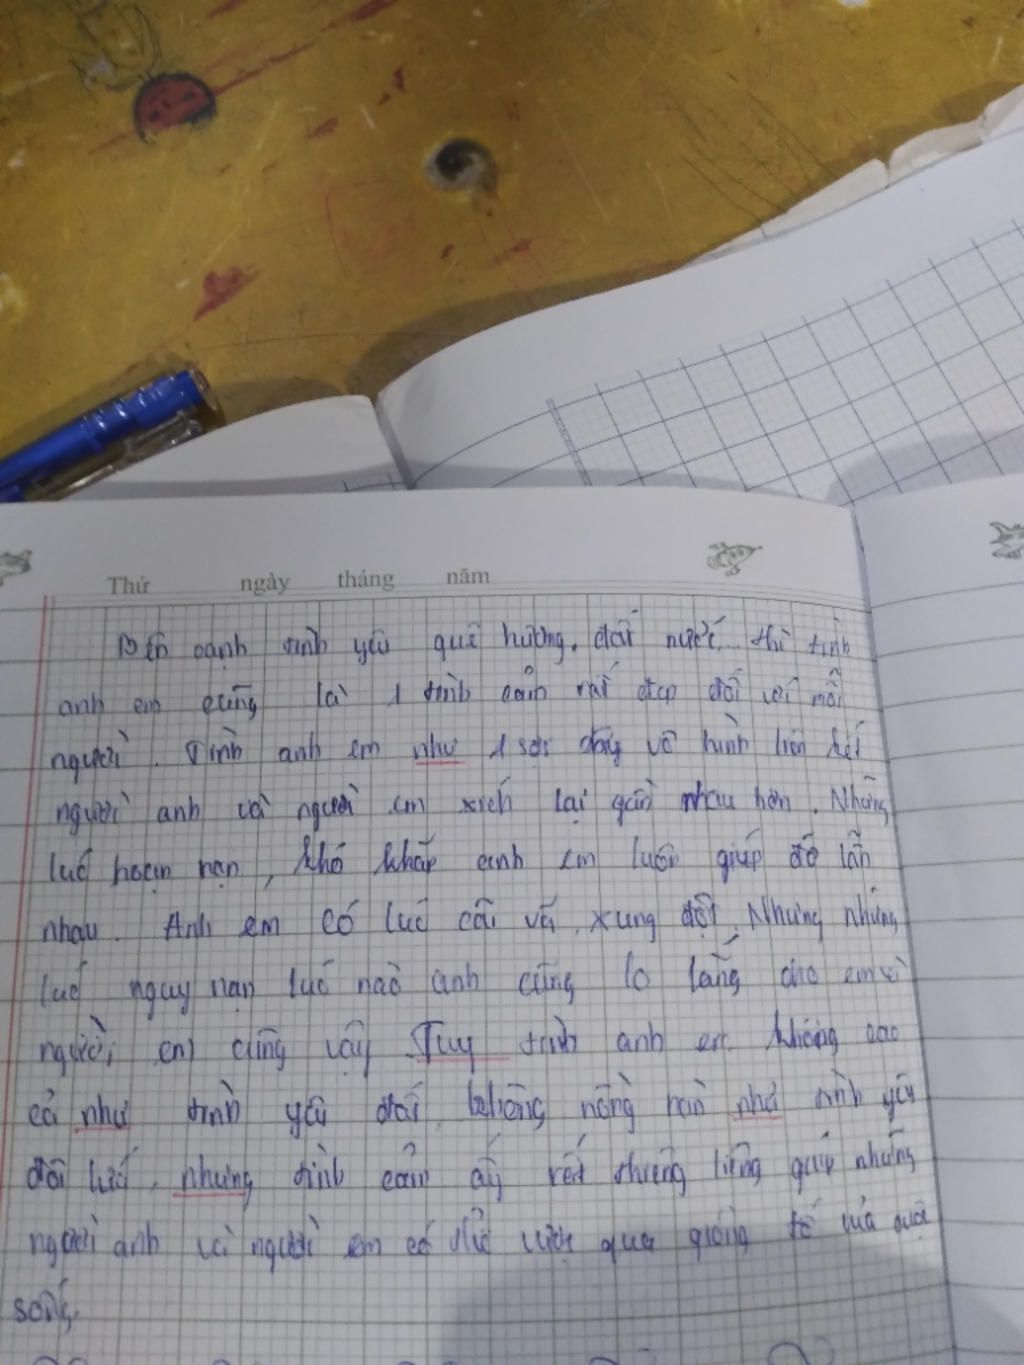 Thứ ngày tháng năm
Bên cạnh tình yêu quê hương, đất nước... thì tình
anh em cũng là 1 tình cảm rất đẹp đối với mỗi
người. Tình anh em như 1 sợi dây vô hình liên kết
người anh và người em xích lại gần nhau hơn. Những
lúc hoạn nạn, khó khăn anh em luôn giúp đỡ lẫn
nhau. Anh em có lúc cãi vã, xung đột. Nhưng những
lúc nguy nan lúc nào anh cũng lo lắng cho em
người em cũng vậy Tuy tình anh em không cao
cả như tình yêu đất không nồng nàn như tình yêu
đôi lứa, nhưng tình cảm ấy rất thiêng liêng giúp những
người anh và người em có thể vượt qua giông tố của cuộc
sống.